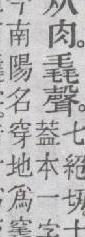 从肉。毳聲。七絕切。十
蓋本一字
今南陽名穿地爲竁